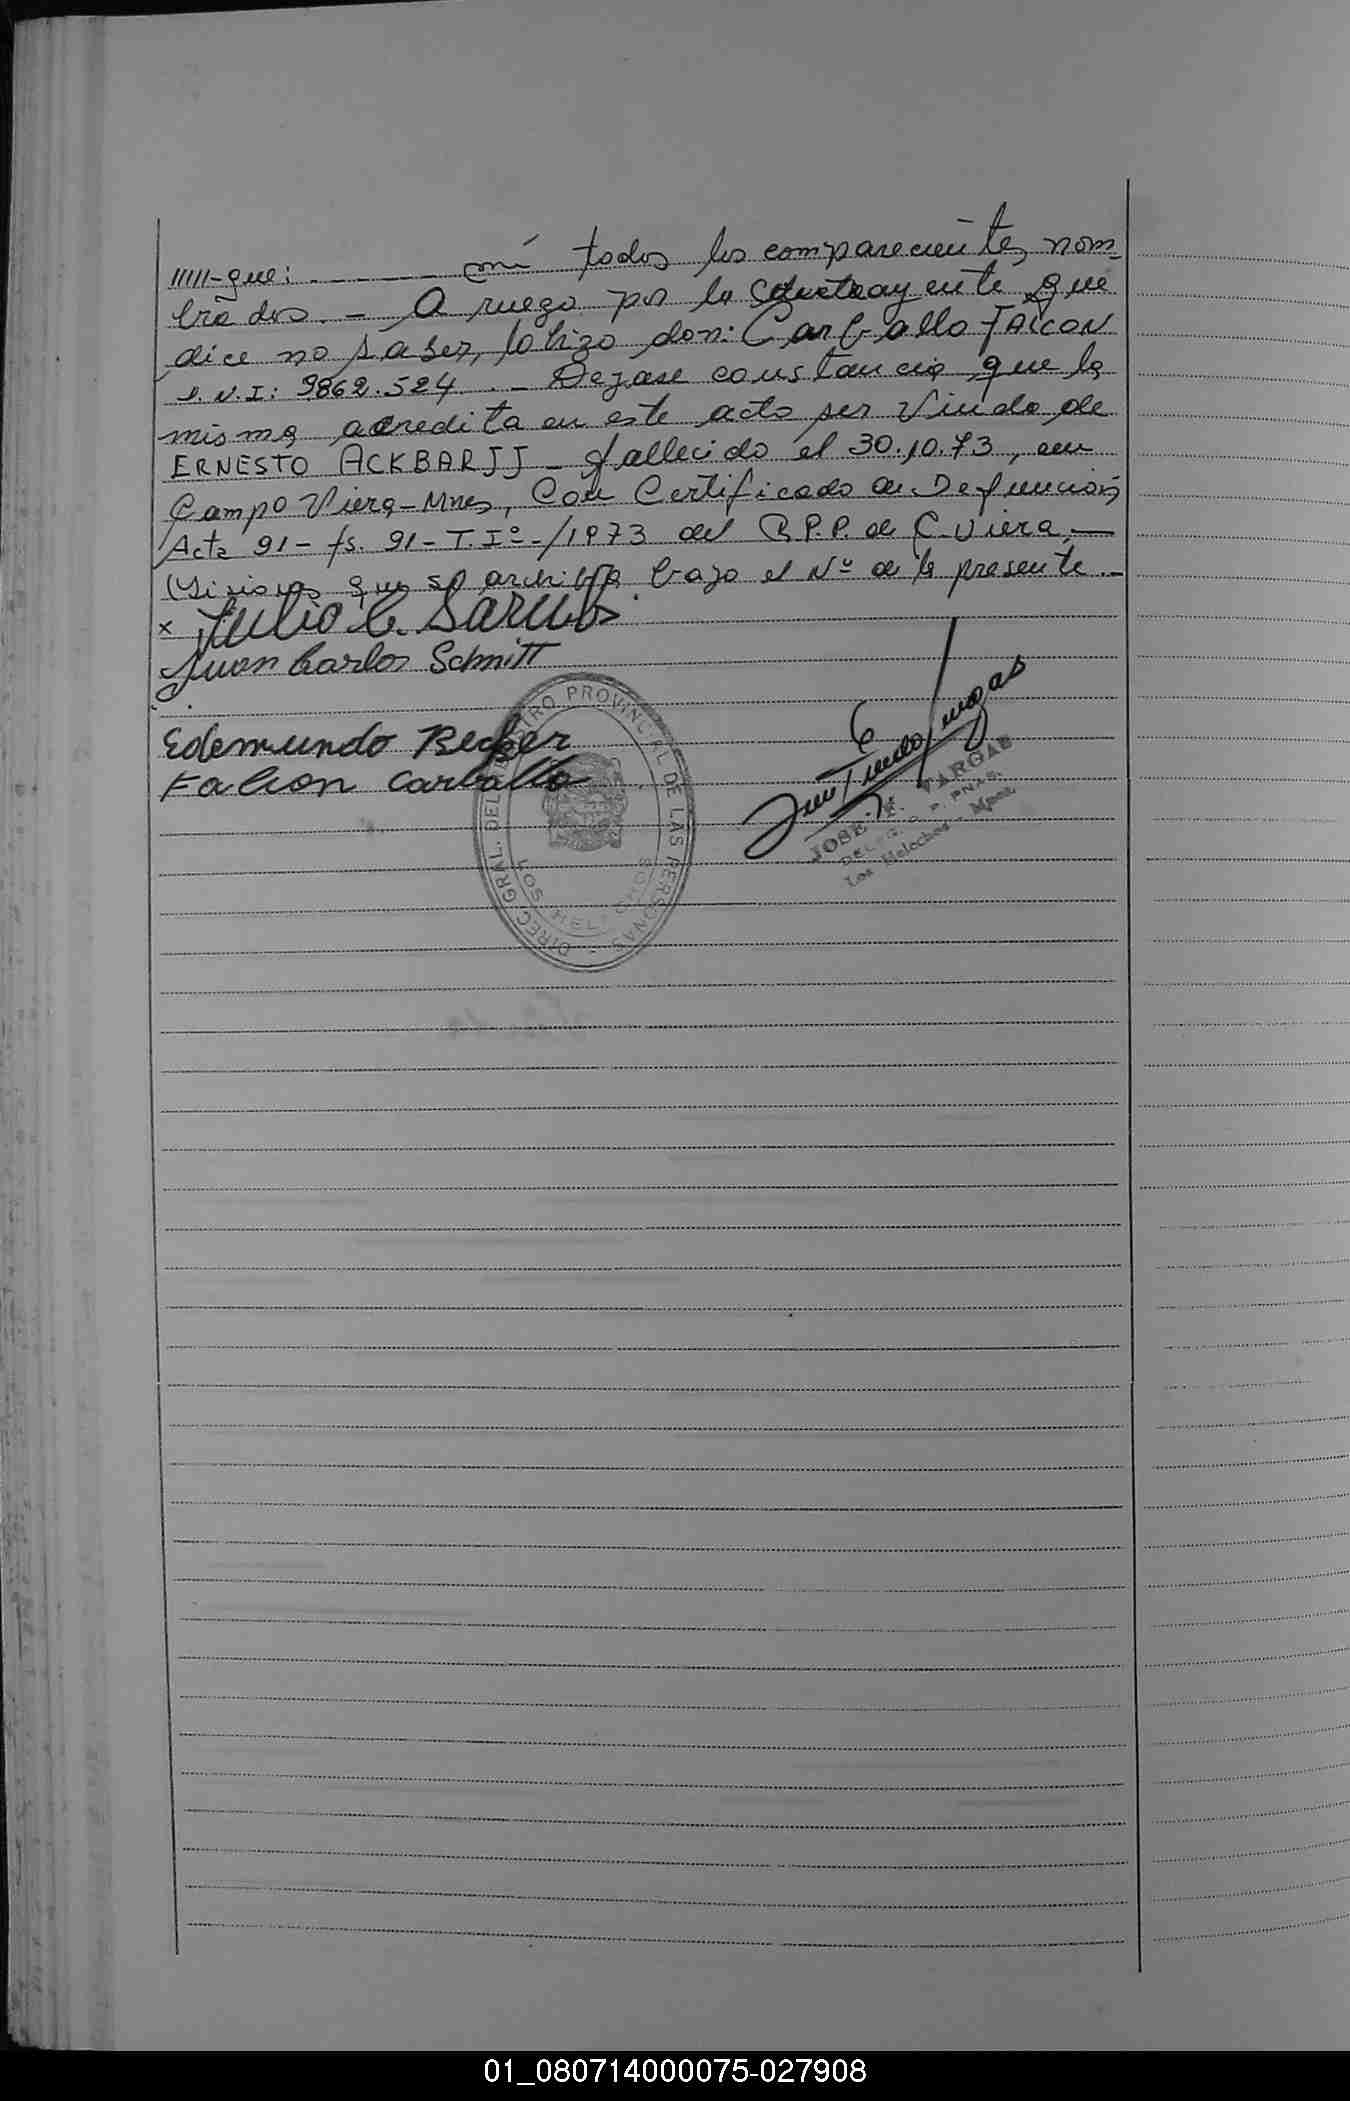 /////-que: . - - - - - - - mí todos los comparecientes nom-
brados. - A ruego por la contrayente que
dice no saber, lo hizo don: Carballo FALCON
D.N.I: 9862.524. - Dejase constancia que la
misma acredita en este acto ser Viuda de
ERNESTO ACKBARJJ - fallecido el 30.10.73, en
Campo Viera - Mnes, Con Certificado de Defunción
Acta 91 - fs. 91 - T. Iº - /1973 del R.P.P. de C. Viera, -
Misiones que se archiva bajo el Nº de la presente. -
x Julio C.
Juan Carlos Schmitt
Edemundo Becker
Falcon Carballo
DIREC. GRAL. DEL REGISTRO PROVINCIAL DE LAS PERSONAS -
LOS HELECHOS
JOSE F. VARGAS
Los Helechos - Mnes.
01_080714000075-027908